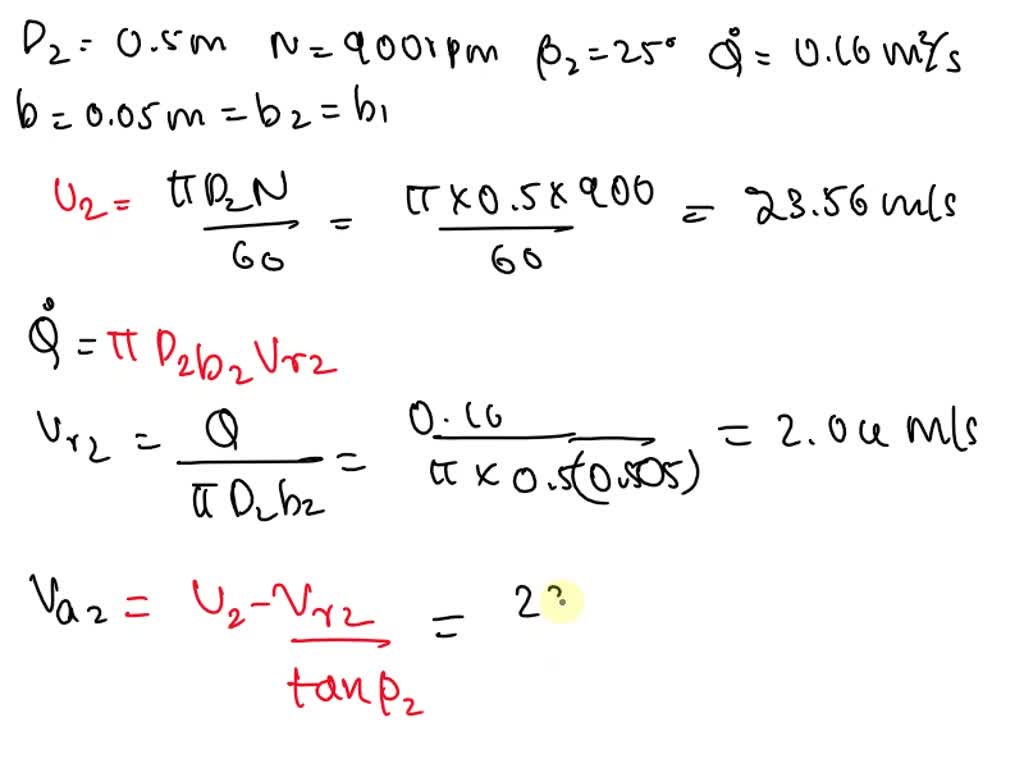 D₂ = 0.5m N = 900rpm β₂ = 25° Q̇ = 0.16 m³/s
b = 0.05m = b₂ = b₁
U₂ = πD₂N/60 = π×0.5×900/60 = 23.56 m/s
Q̇ = π D₂b₂Vr₂
Vr₂ = Q/πD₂b₂ = 0.16/π×0.5(0.505) = 2.04 m/s
Va₂ = U₂ - Vr₂/tanβ₂ = 23